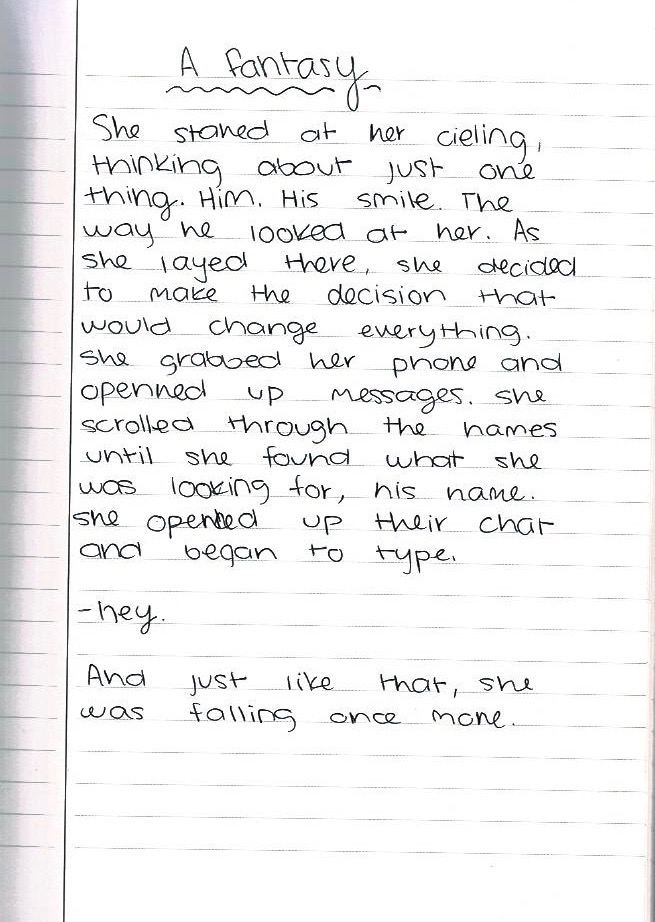 A fantasy
She stared at her cieling,
thinking about just one
thing. Him. His smile. The
way he looked at her. As
she layed there, she decided
to make the decision that
would change everything.
she grabbed her phone and
openned up messages. she
scrolled through the names
until she found what she
was looking for, his name.
she opened up their chat
and began to type.
-hey.
And just like that, she
was falling once more.